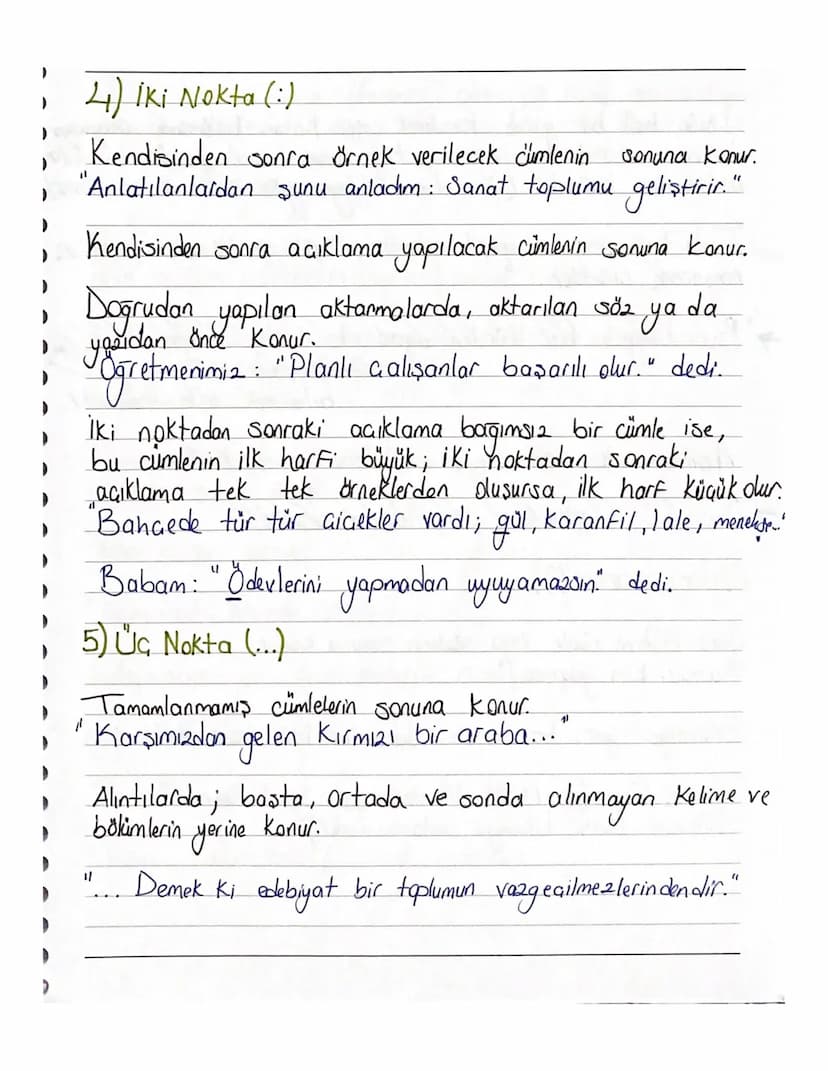 4) İki Nokta (:)
Kendisinden sonra örnek verilecek cümlenin sonuna konur.
"Anlatılanlardan şunu anladım : Sanat toplumu geliştirir."
Kendisinden sonra açıklama yapılacak cümlenin sonuna konur.
Doğrudan yapılan aktarmalarda, aktarılan söz ya da
yazıdan önce konur.
"Öğretmenimiz : "Planlı çalışanlar başarılı olur." dedi.
İki noktadan sonraki açıklama bağımsız bir cümle ise,
bu cümlenin ilk harfi büyük; iki noktadan sonraki
açıklama tek tek örneklerden oluşursa, ilk harf küçük olur.
"Bahçede tür tür çiçekler vardı; gül, karanfil, lale, menekşe..."
Babam : "Ödevlerini yapmadan uyuyamazsın." dedi.
5) Üç Nokta (...)
Tamamlanmamış cümlelerin sonuna konur.
"Karşımızdan gelen kırmızı bir araba..."
Alıntılarda; başta, ortada ve sonda alınmayan kelime ve
bölümlerin yerine konur.
"... Demek ki edebiyat bir toplumun vazgeçilmezlerindendir."